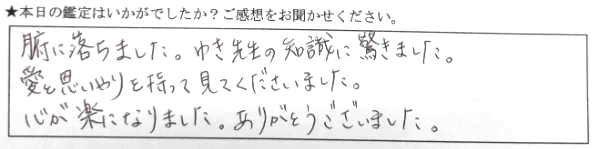 ★本日の鑑定はいかがでしたか？ご感想をお聞かせください。
腑に落ちました。ゆき先生の知識に驚きました。
愛と思いやりを持って見てくださいました。
心が楽になりました。ありがとうございました。